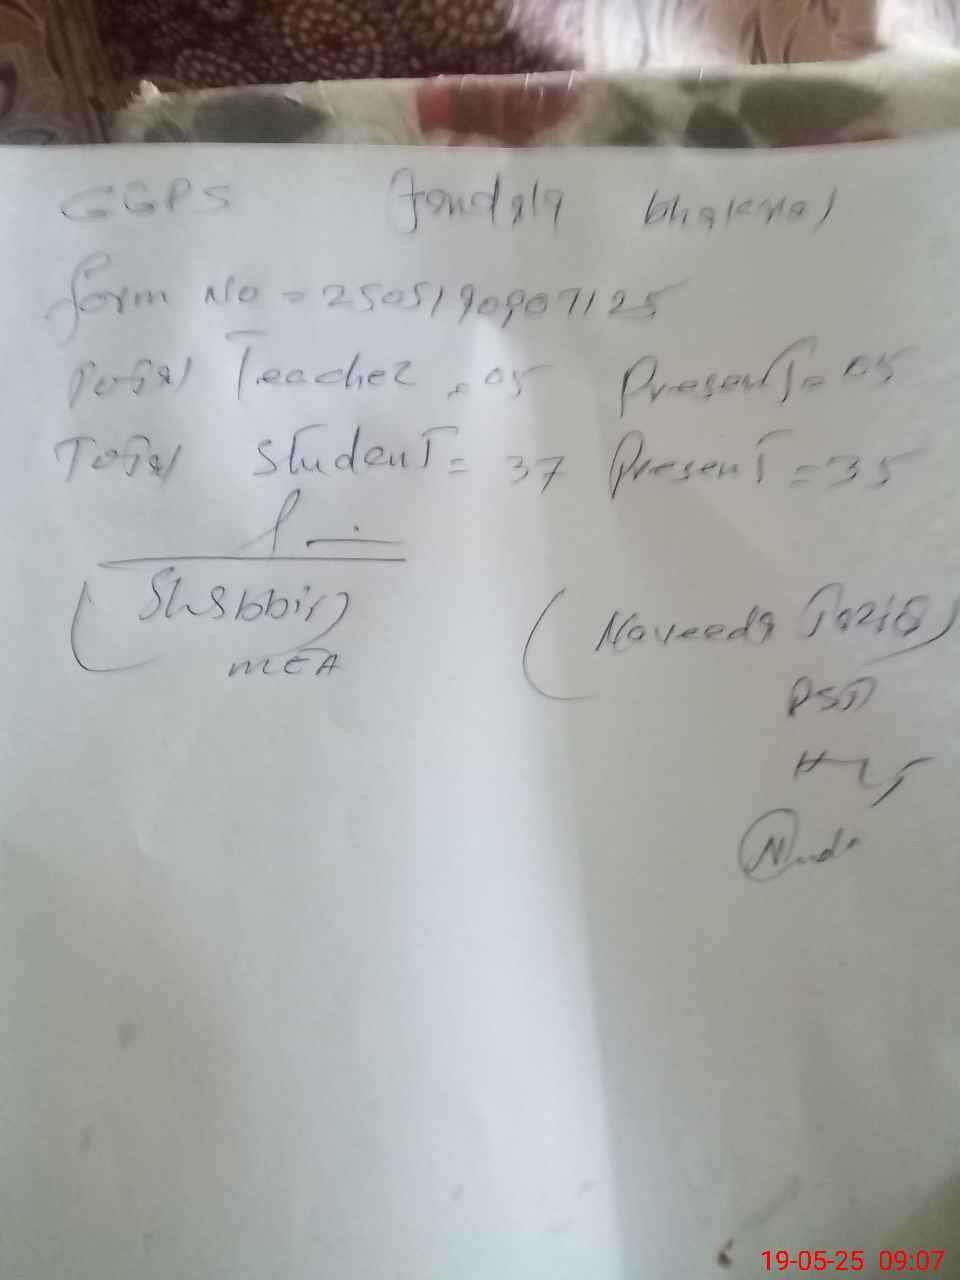 GGPS Jandala bhakral
form No = 2505190907125
Total Teacher = 05 Present = 05
Total Student = 37 Present = 35
(Shabbir)
MEA
(Naveeda Tariq)
PST
19-05-25 09:07